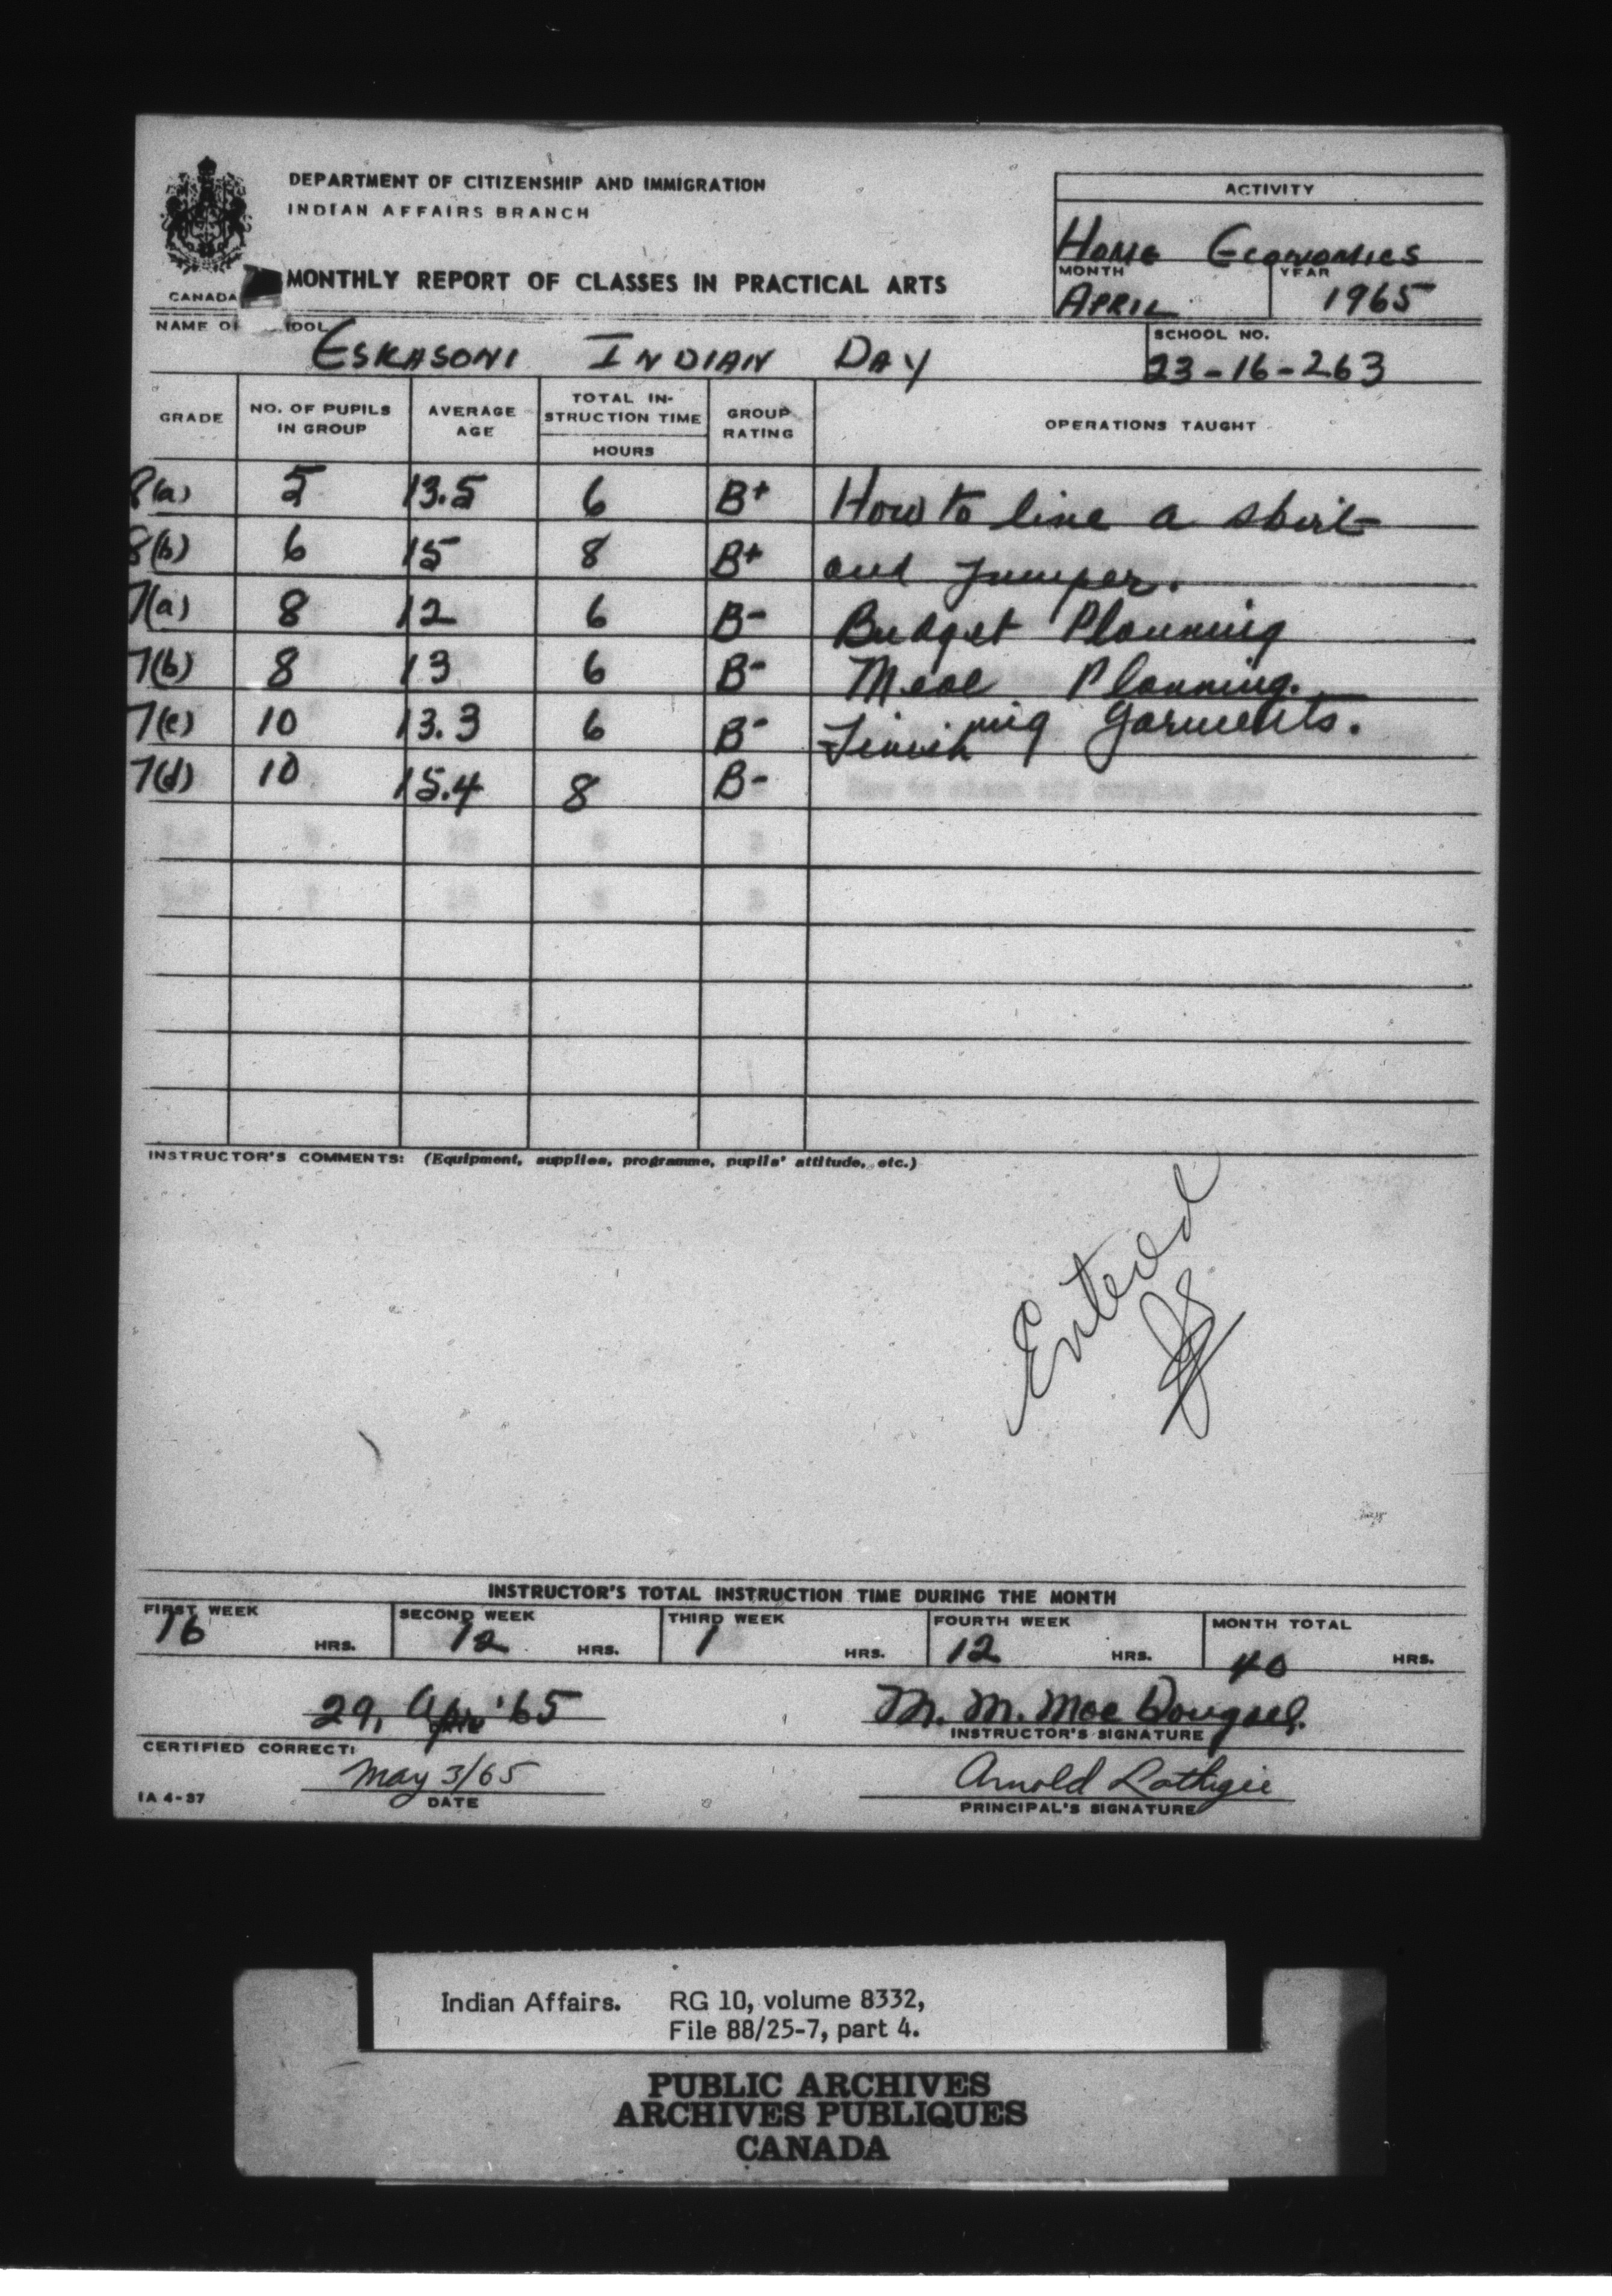 DEPARTMENT OF CITIZENSHIP AND IMMIGRATION
INDIAN AFFAIRS BRANCH
CANADA
MONTHLY REPORT OF CLASSES IN PRACTICAL ARTS
ACTIVITY
Home Economics
MONTH YEAR
APRIL 1965
NAME OF OOL
ESKASONI INDIAN DAY
SCHOOL NO.
23-16-263
GRADE NO. OF PUPILS IN GROUP AVERAGE AGE TOTAL IN-STRUCTION TIME HOURS GROUP RATING OPERATIONS TAUGHT
8(a) 5 13.5 6 B+ How to line a skirt
8(b) 6 15 8 B+ and jumper.
7(a) 8 12 6 B- Budget Planning
7(b) 8 13 6 B- Meal Planning.
7(c) 10 13.3 6 B- Finishing garments.
7(d) 10 15.4 8 B-
INSTRUCTOR'S COMMENTS: (Equipment, supplies, programme, pupils' attitude, etc.)
Entered
INSTRUCTOR'S TOTAL INSTRUCTION TIME DURING THE MONTH
FIRST WEEK SECOND WEEK THIRD WEEK FOURTH WEEK MONTH TOTAL
16 HRS. 12 HRS. 1 HRS. 12 HRS. 40 HRS.
29, Apr '65 M. M. MacDougall.
DATE INSTRUCTOR'S SIGNATURE
CERTIFIED CORRECT:
May 3/65 Arnold
IA 4-37 DATE PRINCIPAL'S SIGNATURE
Indian Affairs. RG 10, volume 8332,
File 88/25-7, part 4.
PUBLIC ARCHIVES
ARCHIVES PUBLIQUES
CANADA